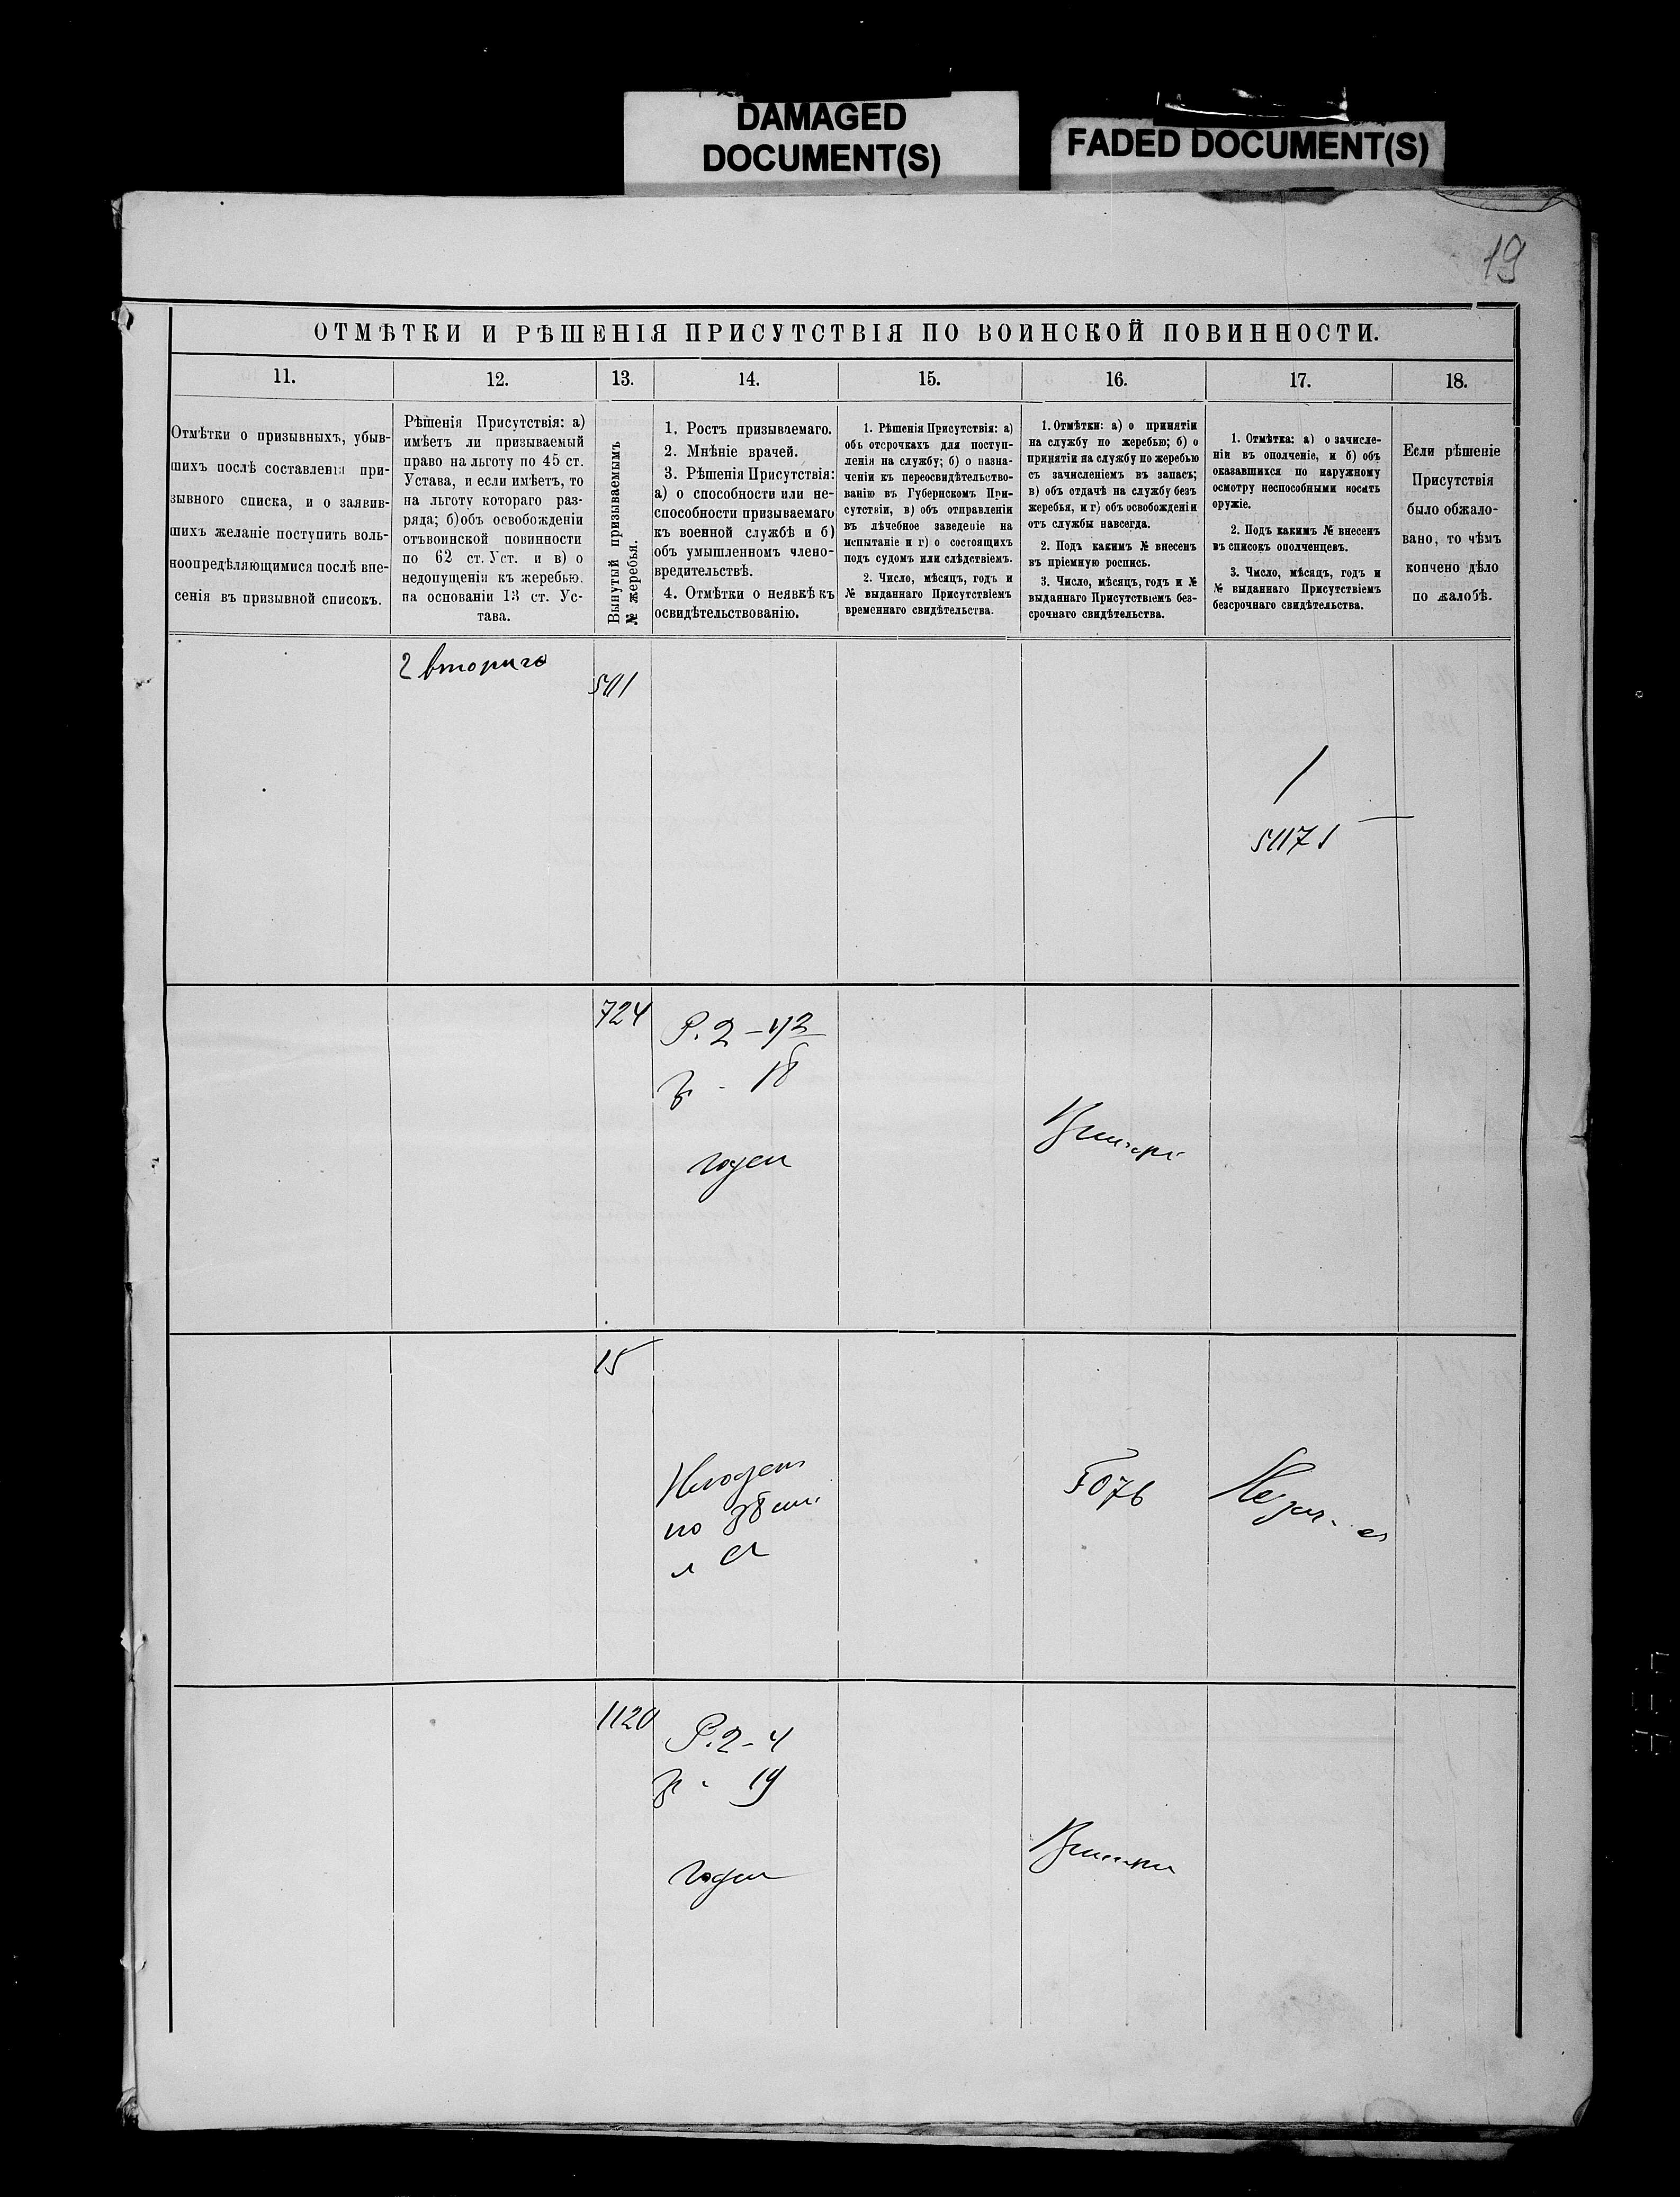 DAMAGED
DOCUMENT(S)
FADED DOCUMENT(S)
19
ОТМѢТКИ И РѢШЕНІЯ ПРИСУТСТВІЯ ПО ВОИНСКОЙ ПОВИННОСТИ.
11.
12.
13.
14.
15.
16.
17.
18.
Отмѣтки о призывныхъ, убыв-
шихъ послѣ составленія при-
зывного списка, и о заявив-
шихъ желаніе поступить воль-
ноопредѣляющимися послѣ вне-
сенія въ призывной списокъ.
Рѣшенія Присутствія: а)
имѣетъ ли призываемый
право на льготу по 45 ст.
Устава, и если имѣетъ, то
на льготу котораго раз-
ряда; б) объ освобожденіи
отъ воинской повинности
по 62 ст. Уст. и в) о
недопущеніи къ жеребью.
на основаніи 13 ст. Ус-
тава.
Вынутый призываемымъ
№ жеребья.
1. Ростъ призываемаго.
2. Мнѣніе врачей.
3. Рѣшенія Присутствія:
а) о способности или не-
способности призываемаго
къ военной службѣ и б)
объ умышленномъ члено-
вредительствѣ.
4. Отмѣтки о неявкѣ къ
освидѣтельствованію.
1. Рѣшенія Присутствія: а)
объ отсрочкахъ для поступ-
ленія на службу; б) о назна-
ченіи къ переосвидѣтельство-
ванію въ Губернскомъ При-
сутствіи, в) объ отправленіи
въ лѣчебное заведеніе на
испытаніе и г) о состоящихъ
подъ судомъ или слѣдствіемъ.
2. Число, мѣсяцъ, годъ и
№ выданнаго Присутствіемъ
временнаго свидѣтельства.
1. Отмѣтки: а) о принятіи
на службу по жеребью; б) о
принятіи на службу по жеребью
съ зачисленіемъ въ запасъ;
в) объ отдачѣ на службу безъ
жеребья, и г) объ освобожденіи
отъ службы навсегда.
2. Подъ какимъ № внесенъ
въ пріемную роспись.
3. Число, мѣсяцъ, годъ и №
выданнаго Присутствіемъ без-
срочнаго свидѣтельства.
1. Отмѣтка: а) о зачисле-
ніи въ ополченіе, и б) объ
оказавшихся по наружному
осмотру неспособными носить
оружіе.
2. Подъ какимъ № внесенъ
въ списокъ ополченцевъ.
3. Число, мѣсяцъ, годъ и
№ выданнаго Присутствіемъ
безсрочнаго свидѣтельства.
Если рѣшеніе
Присутствія
было обжало-
вано, то чѣмъ
кончено дѣло
по жалобѣ.
2
724
Р. 2 -
18
годен
15
по
1120
Р. 2 - 4
19
годен